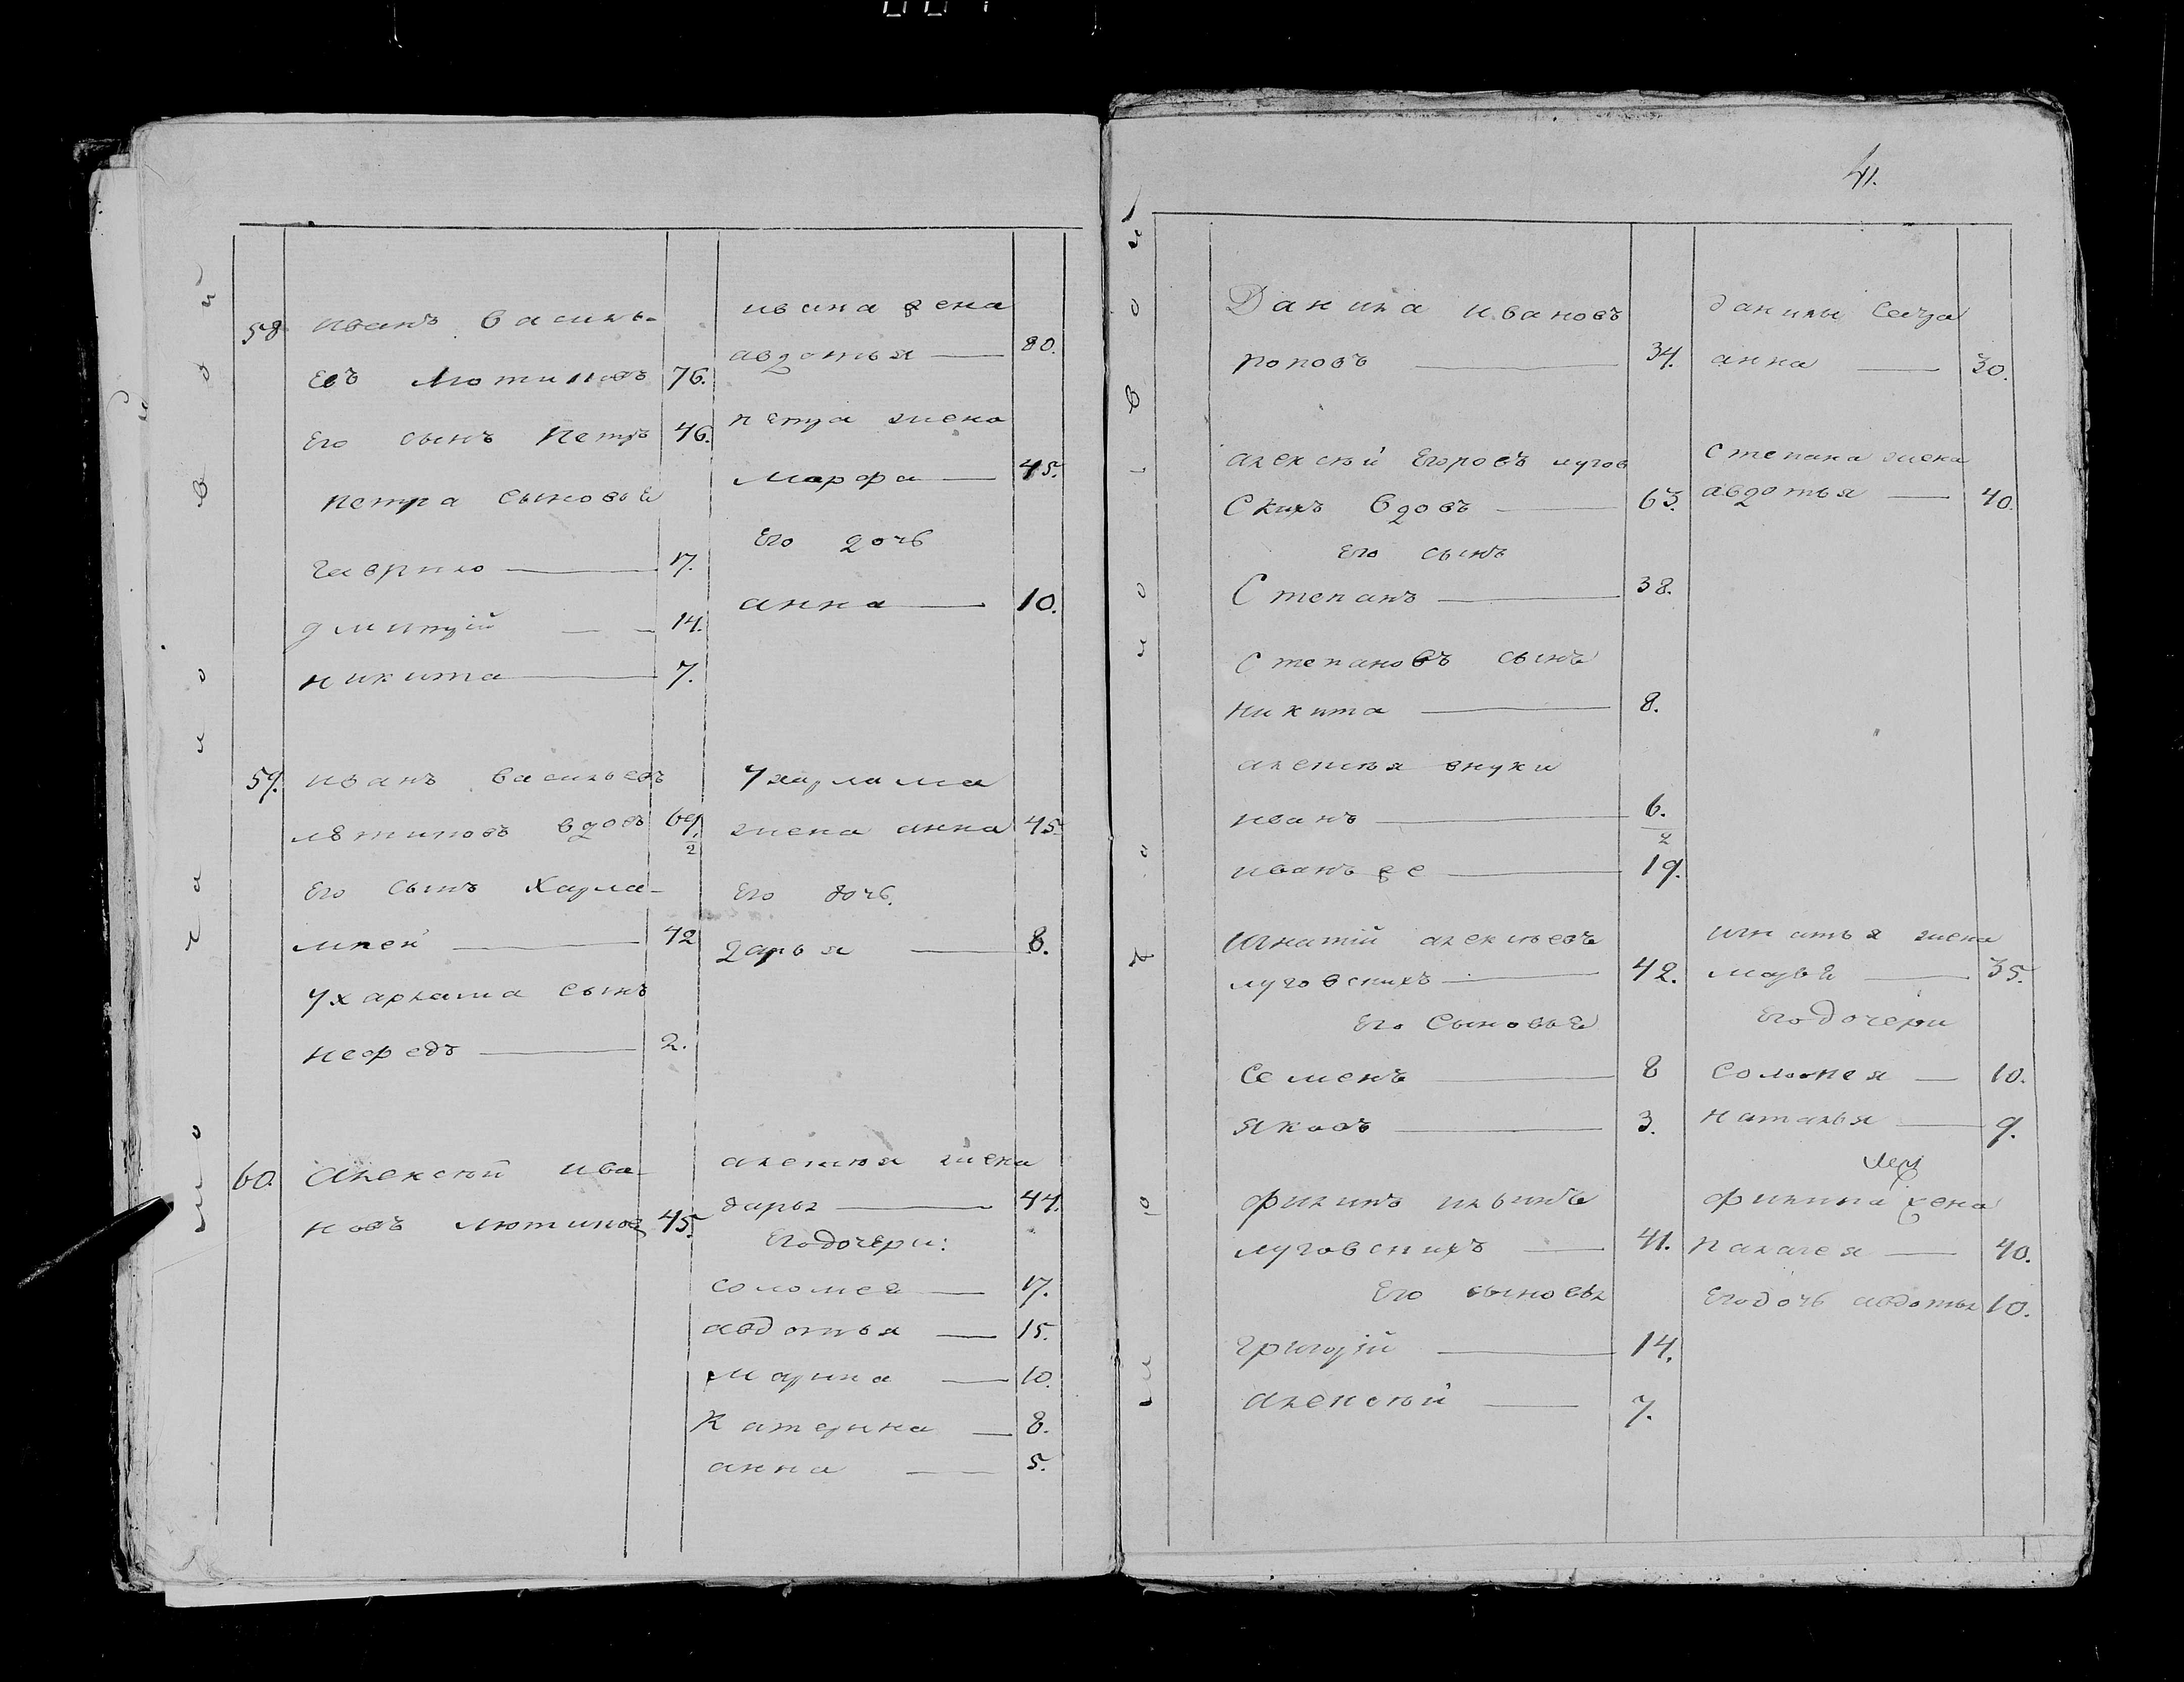 58. иванъ василь-
евъ Лютиновъ 76.
Его сынъ Петръ 46.
Петра сыновья
гаврило 17.
дмитрій 14.
никита 7.
ивана жена
авдотья 80.
петра жена
марфа 45.
Его дочь
анна 10.
59. иванъ васильевъ
лѣтиновъ вдовъ 69. 1/2
Его сынъ Харла-
мпей 42
у харлама сынъ
нефедъ 2.
у харлама
жена анна 45
Его дочь
дарья 8.
60. алексѣй ива-
новъ лютиновъ 45.
алексѣя жена
дарья 44.
Его дочери:
соломея 17.
авдотья 15.
марина 10.
Катерина 8.
анна 5.
41.
Данила ивановъ
поповъ 34.
данилы сестра
анна 30.
алексѣй Егоровъ лугов
скихъ вдовъ 63.
Его сынъ
Степанъ 38.
Степановъ сынъ
никита 8.
алексѣя внуки
иванъ 6. 1/2
иванъ же 19.
Степана жена
авдотья 40.
игнатій алексѣевъ
луговскихъ 42.
Его Сыновья
Семенъ 8
Яковъ 3.
игнатья жена
марья 35.
Его дочери
соломея 10.
наталья 9.
филипъ ильинъ
луговскихъ 41.
Его сыновья
григорій 14.
алексѣй 7.
филипа жена
палагея 40.
Его дочь авдотья 10.